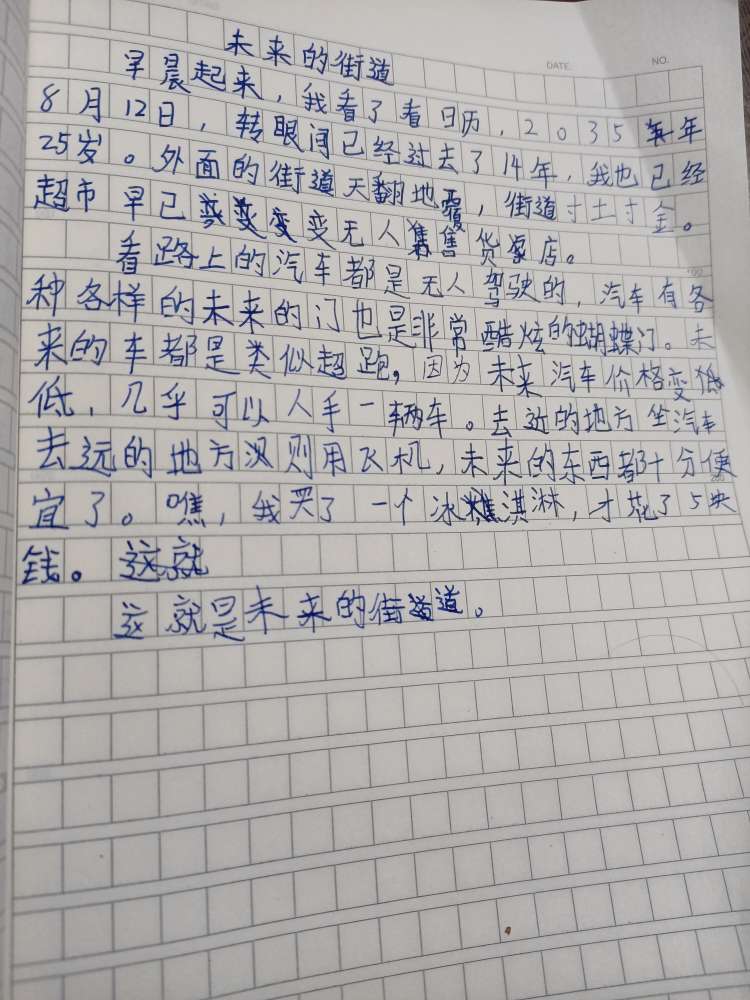 DATE NO.
未来的街道
早晨起来，我看了看日历，2035年
8月12日，转眼间已经过去了14年，我也已经
25岁。外面的街道天翻地覆，街道寸土寸金。
超市早已变无人售货店。
看路上的汽车都是无人驾驶的，汽车有各
种各样的未来的门也是非常酷炫的蝴蝶门。未
来的车都是类似超跑，因为未来汽车价格变
低，几乎可以人手一辆车。去近的地方坐汽车
去远的地方则用飞机，未来的东西都十分便
宜了。噍，我买了一个冰淇淋，才花了5块
钱。这就
这就是未来的街道。